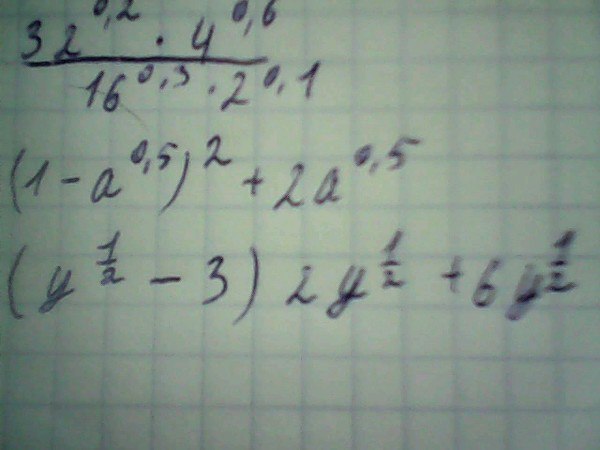 32^0,2 · 4^0,6
16^0,3 · 2^0,1
(1 - a^0,5)^2 + 2a^0,5
(y^1/2 - 3) 2y^1/2 + 6y^1/2